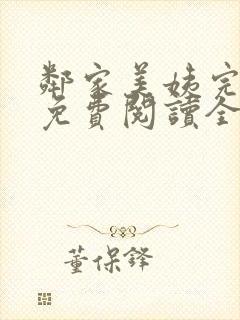 鄰家美姨完
免費閱讀全
董保鋒